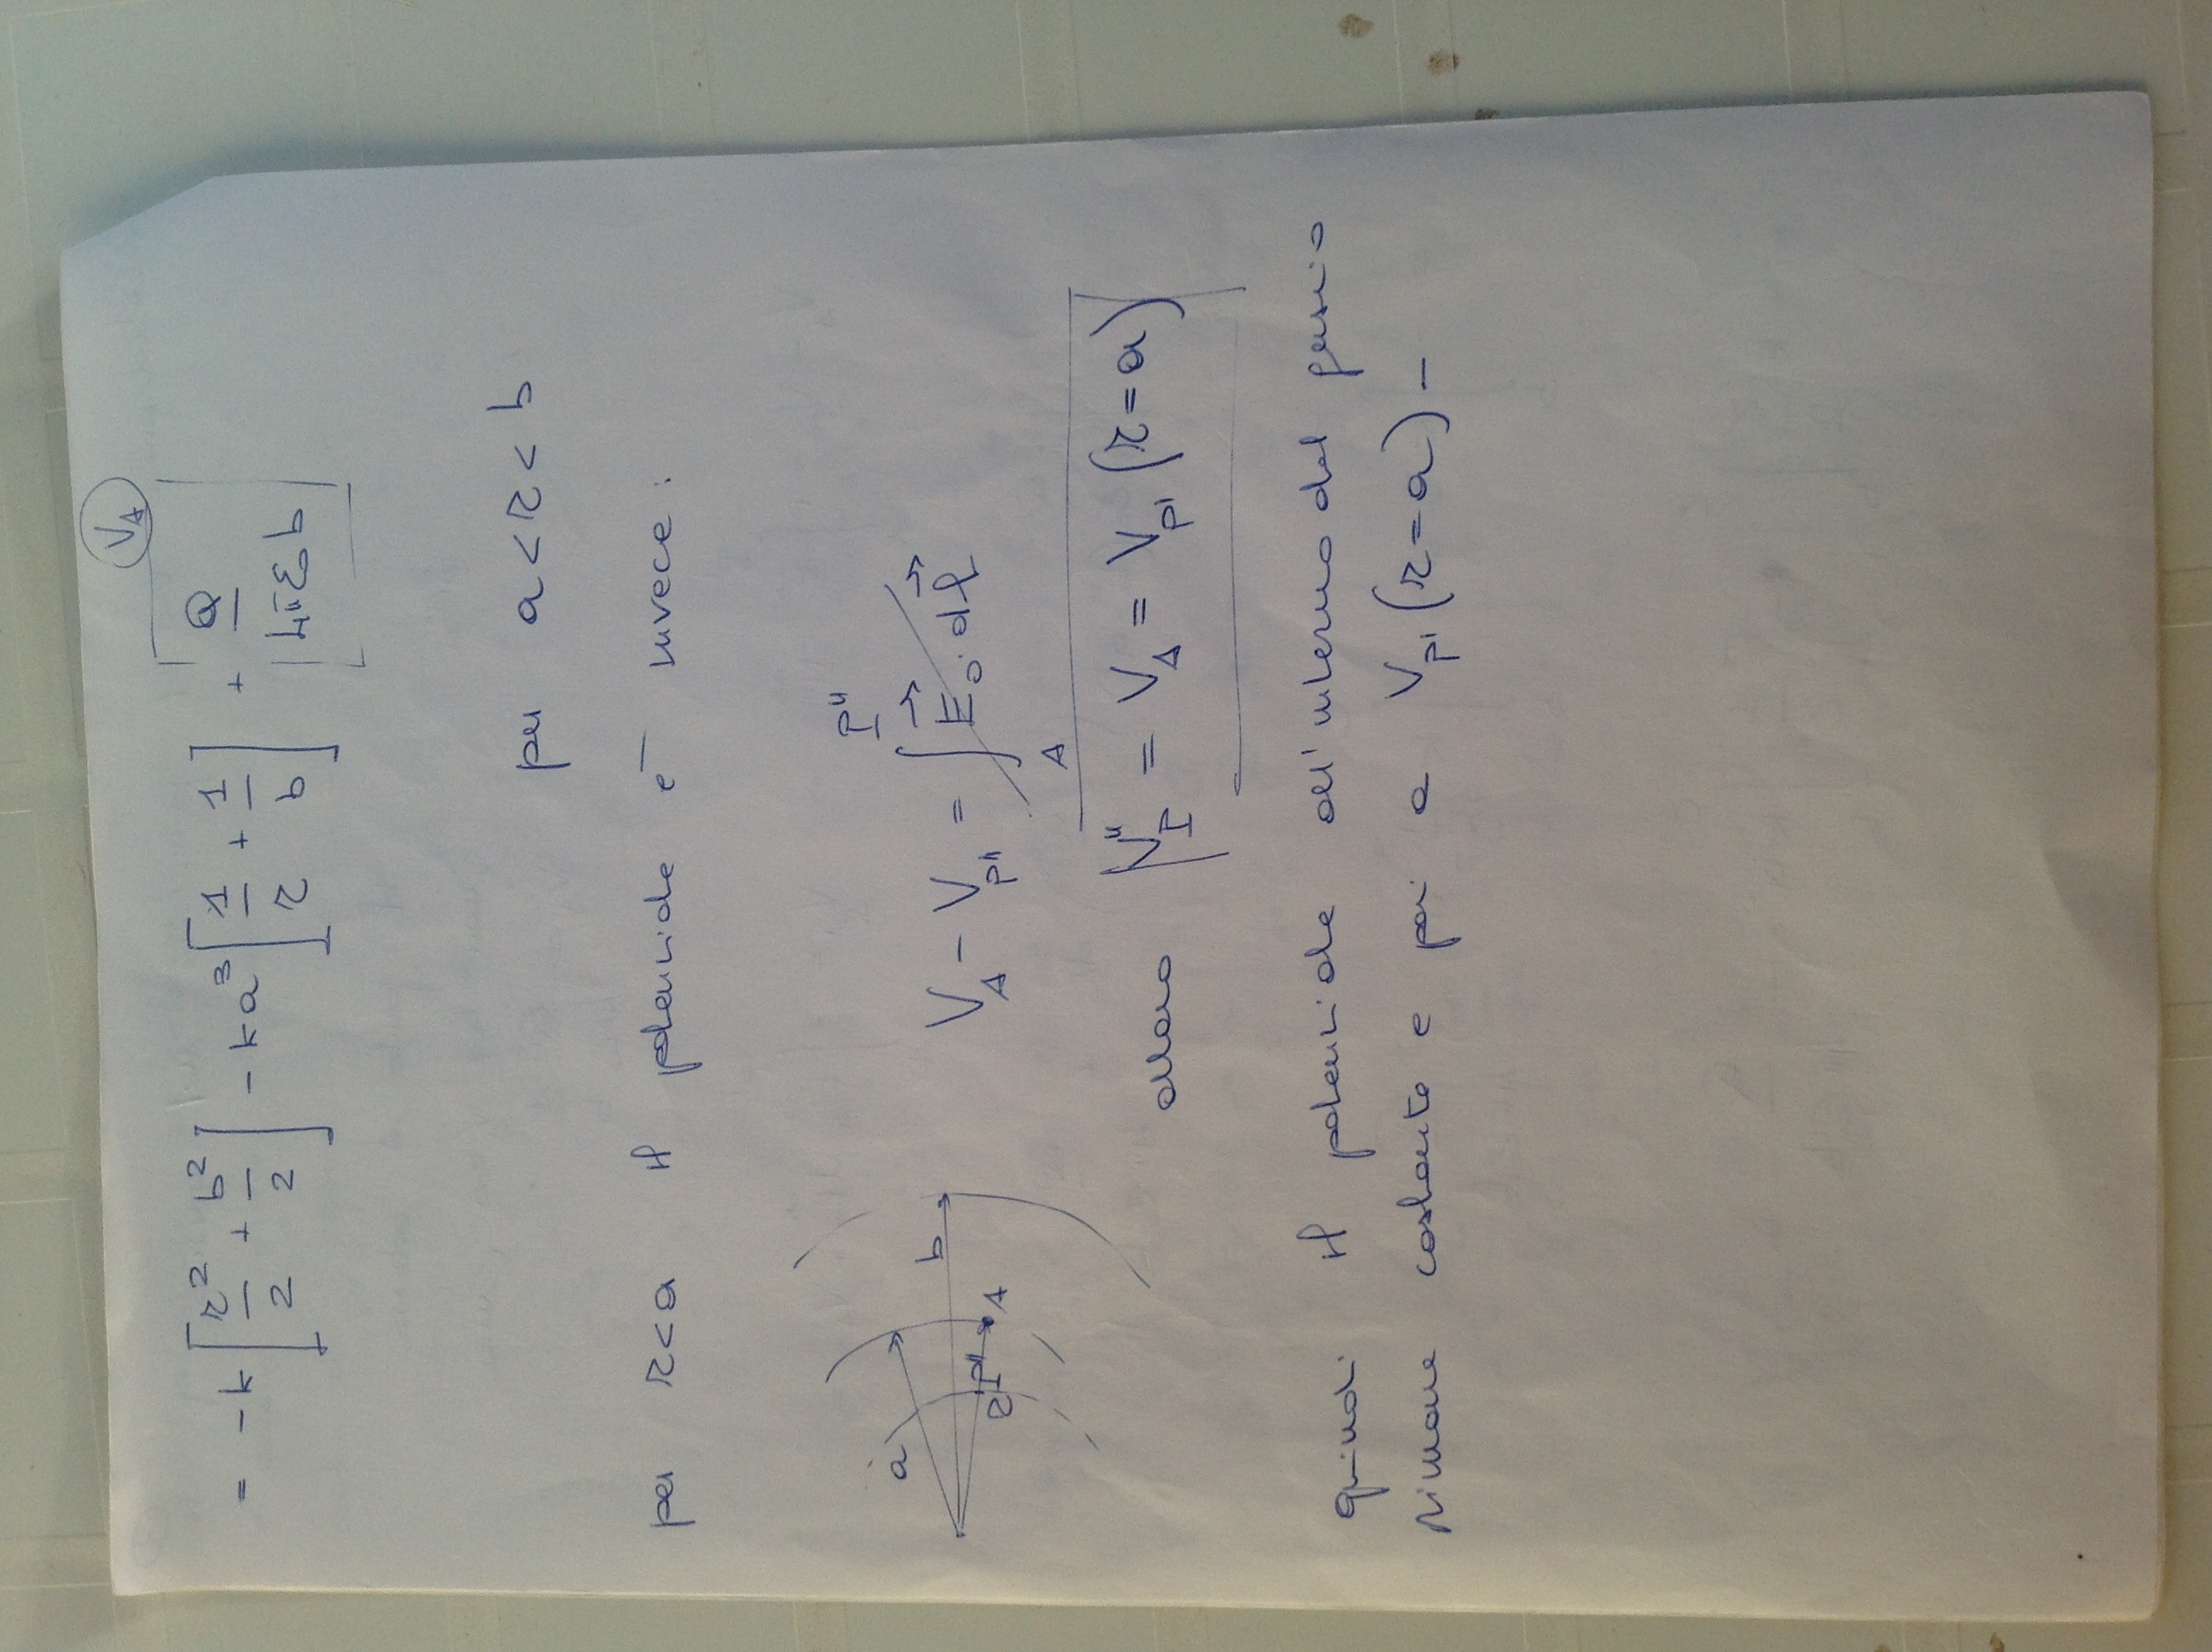 V_A
= -k [ r²/2 + b²/2 ] - ka³ [ 1/r + 1/b ] + Q/4πε₀b
per a < r < b
per r < a il potenziale è invece :
a
b
r P" A
V_A - V_P" = ∫_A^P" E⃗₀ · dl⃗
allora V"_P = V_A = V_P' (r=a)
quindi il potenziale all'interno del guscio
rimane costante e pari a V_P' (r=a) -